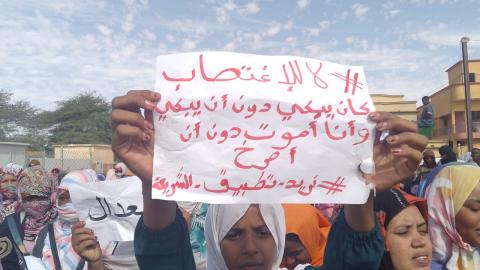 #لا للإغتصاب
كان يبكي دون أن يبكي
وأنا أموت دون أن
أصرخ
#نريد-تطبيق-الشريعة